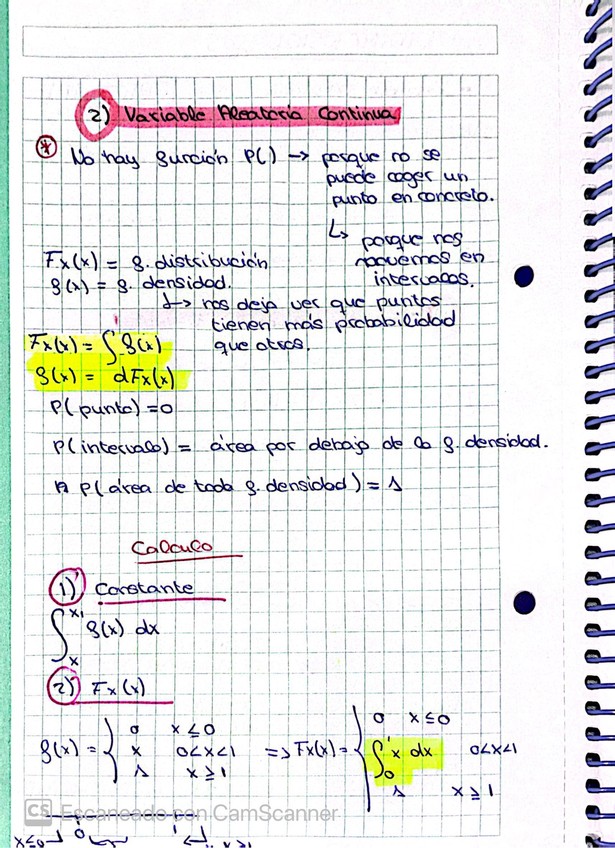 2) Variable Aleatoria Continua
* No hay función P() → porque no se
puede coger un
punto en concreto.
↳ porque nos
movemos en
intervalos.
Fx(x) = f. distribución
f(x) = f. densidad.
↳ nos deja ver que puntos
tienen más probabilidad
que otros.
Fx(x) = ∫ f(x)
f(x) = dFx(x)
P(punto) = 0
P(intervalo) = área por debajo de la f. densidad.
P(área de toda f. densidad) = 1
Calculo
1) Constante
∫ₓ^x1 f(x) dx
2) Fx(x)
f(x) = { 0 x ≤ 0
x 0<x<1
1 x ≥ 1
=> Fx(x) = { 0 x ≤ 0
∫₀¹ x dx 0<x<1
1 x ≥ 1
CS Escaneado con CamScanner
x≤0 0 1